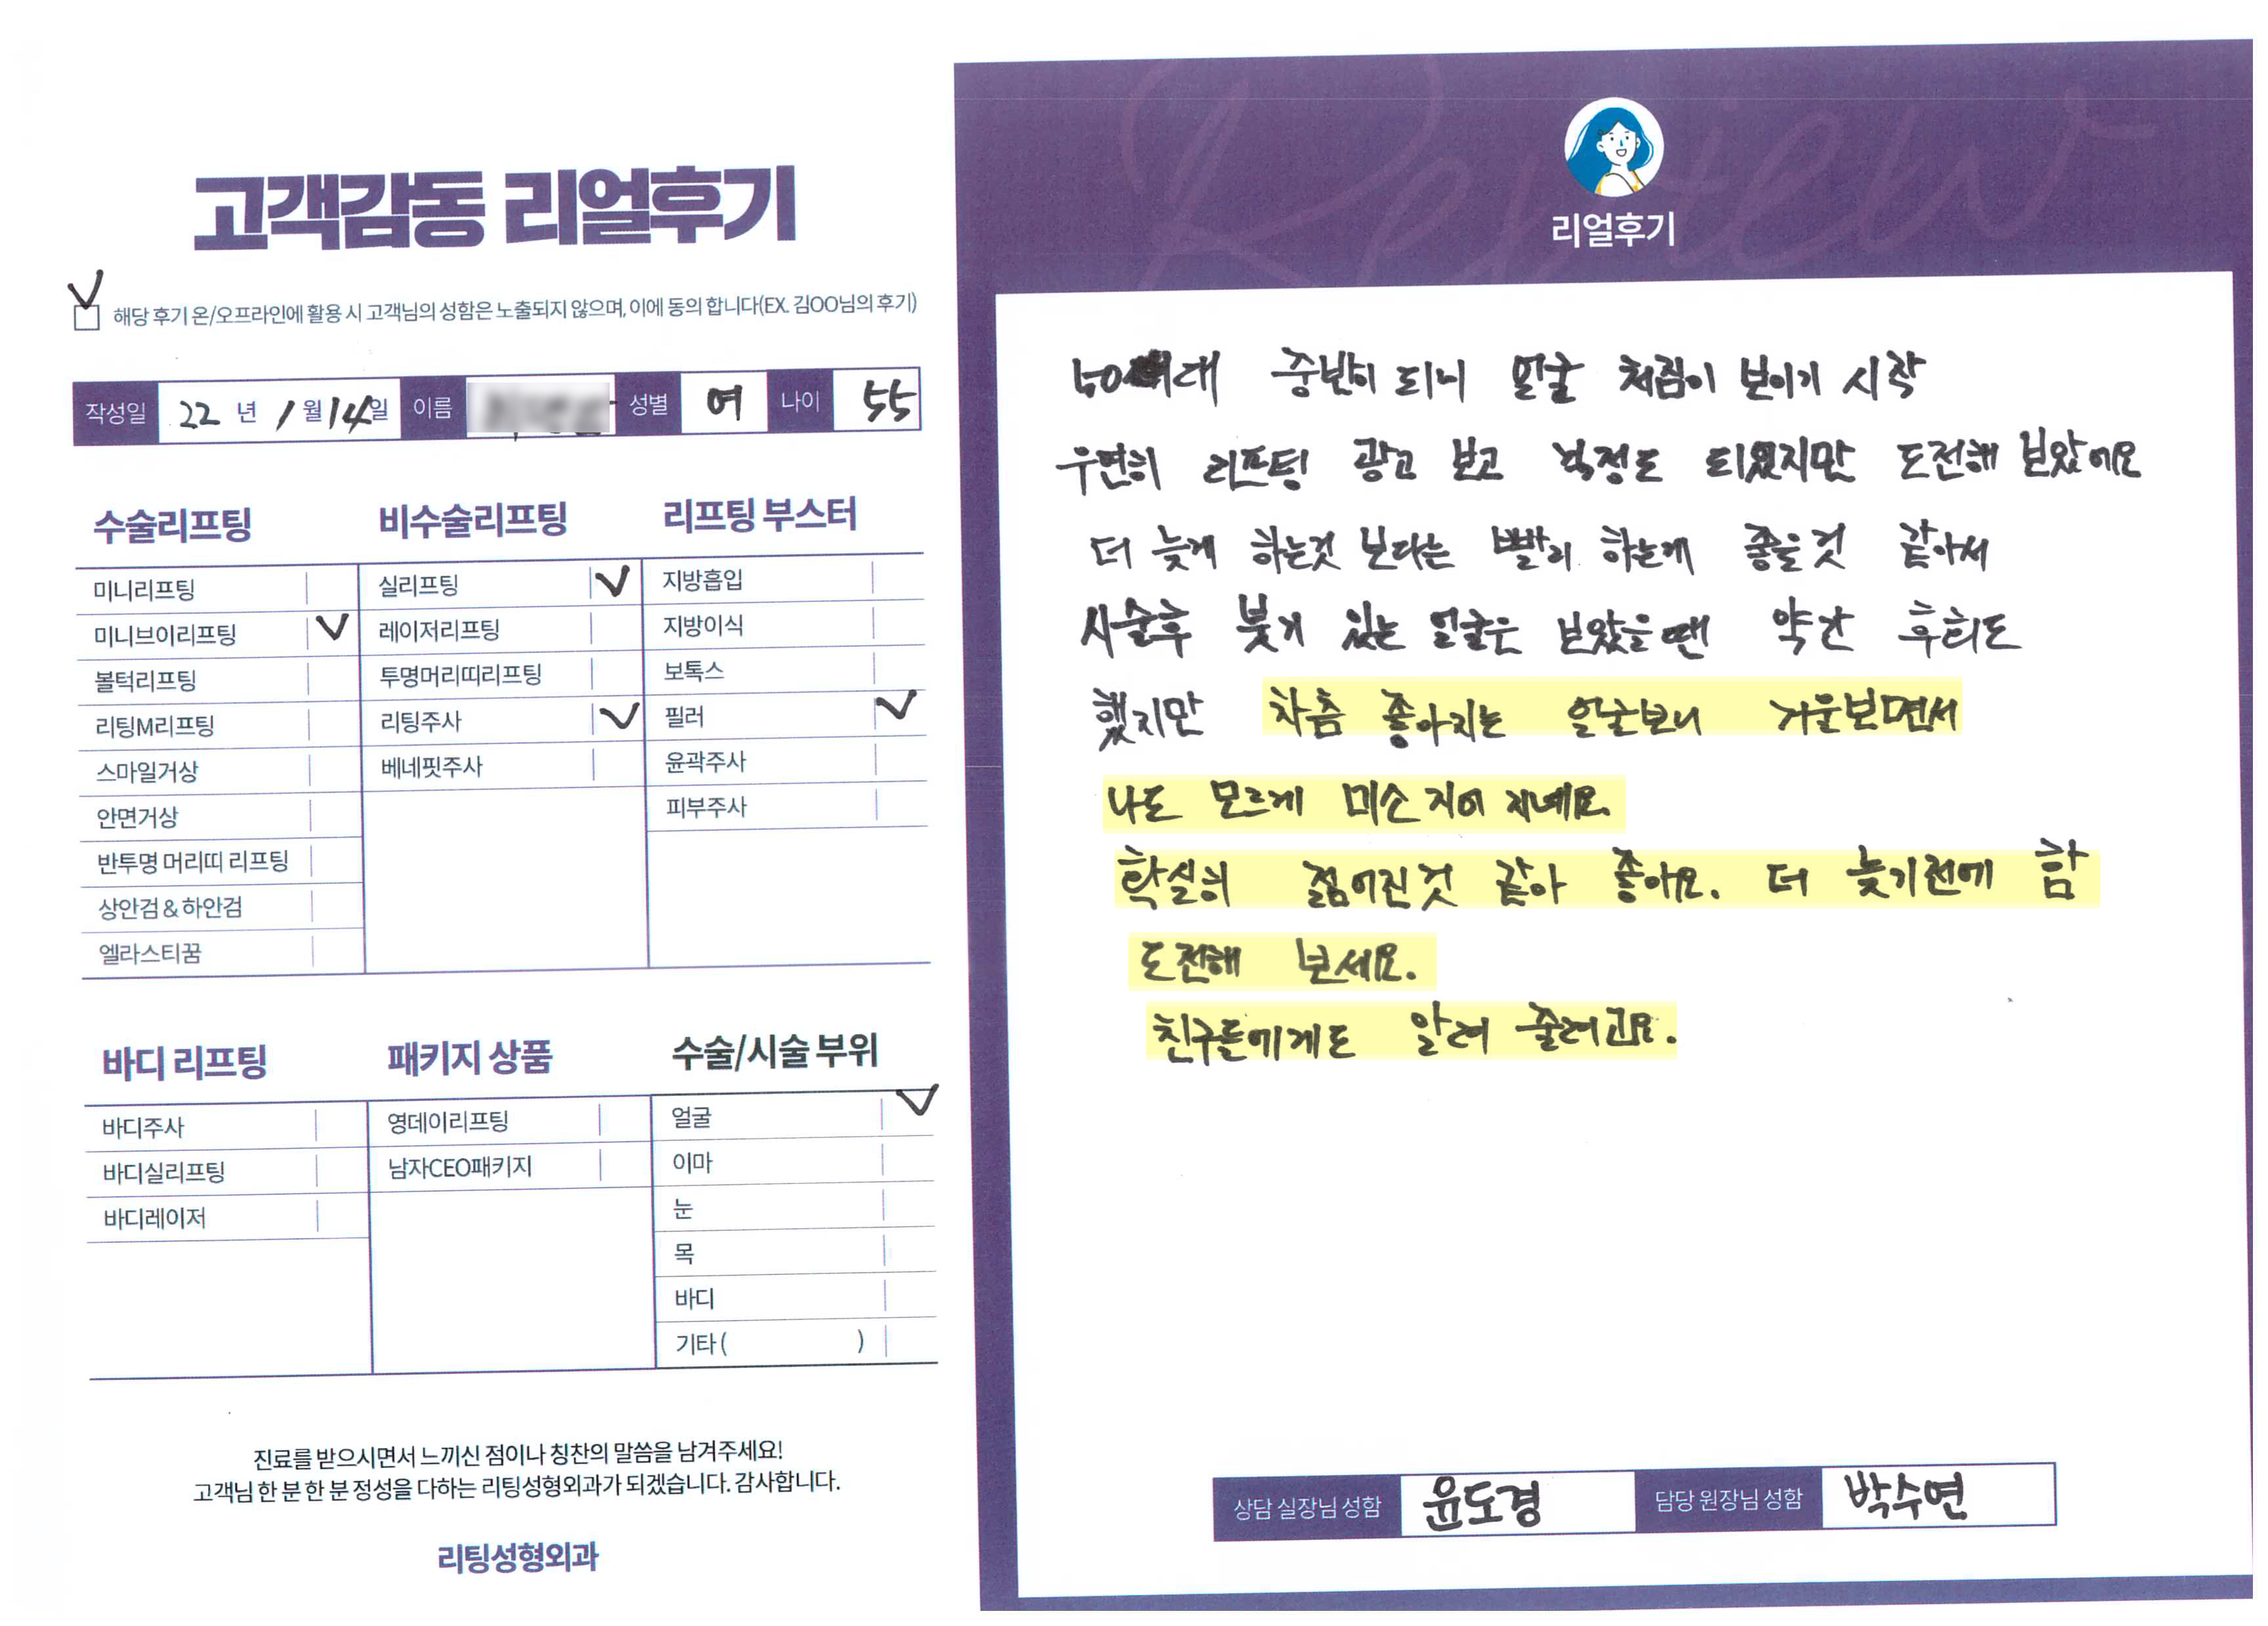 고객감동 리얼후기
해당 후기 온/오프라인에 활용 시 고객님의 성함은 노출되지 않으며, 이에 동의 합니다(EX. 김OO님의 후기)
작성일 22 년 1 월 14 일 이름 성별 여 나이 55
수술리프팅
미니리프팅
미니브이리프팅 V
볼턱리프팅
리팅M리프팅
스마일거상
안면거상
반투명 머리띠 리프팅
상안검 & 하안검
엘라스티꿈
비수술리프팅
실리프팅 V
레이저리프팅
투명머리띠리프팅
리팅주사 V
베네핏주사
리프팅 부스터
지방흡입
지방이식
보톡스
필러 V
윤곽주사
피부주사
바디 리프팅
바디주사
바디실리프팅
바디레이저
패키지 상품
영데이리프팅
남자CEO패키지
수술/시술 부위
얼굴 V
이마
눈
목
바디
기타 ( )
진료를 받으시면서 느끼신 점이나 칭찬의 말씀을 남겨주세요!
고객님 한 분 한 분 정성을 다하는 리팅성형외과가 되겠습니다. 감사합니다.
리팅성형외과
Review
리얼후기
50대 중반이 되니 얼굴 처짐이 보이기 시작
우연히 리프팅 광고 보고 걱정도 되었지만 도전해 보았에요
더 늦게 하는것 보다는 빨리 하는게 좋을것 같아서
시술후 붓기 있는 얼굴은 보았을땐 약간 후회도
했지만 차츰 좋아지는 얼굴보니 거울보면서
나도 모르게 미소 지어 지네요.
확실히 젊어진것 같아 좋아요. 더 늦기전에 함
도전해 보세요.
친구들에게도 알려 줄려고요.
상담 실장님 성함 윤도경 담당 원장님 성함 박수연